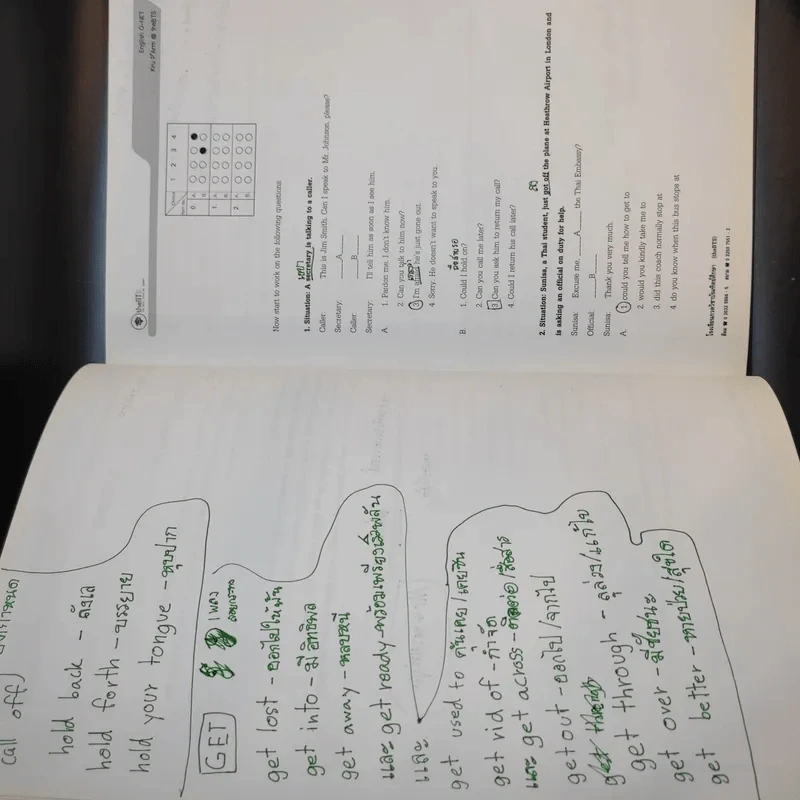 call off)
hold back - ลังเล
hold forth - บรรยาย
hold your tongue - หุบปาก
GET
เพลง
get lost - ออกไปให้พ้น
get into - มีอิทธิพล
get away - หลบหนี
และ get ready - พร้อม
และ
get used to คุ้นเคย/เคยชิน
get rid of - กำจัด
และ get across - ติดต่อ/สื่อสาร
get out - ออกไป/จากไป
get through - ลุล่วง/แก้ไข
get over - มีชัยชนะ
get better - หายป่วย/สุขใด
English O-NET
Kru P'Arm @ theBTS
theBTS
1 2 3 4
0 A
B
1 A
B
2 A
B
Now start to work on the following questions.
1. Situation: A secretary is talking to a caller.
Caller: This is Jim Smith. Can I speak to Mr. Johnson, please?
Secretary: ____A____
Caller: ____B____
Secretary: I'll tell him as soon as I see him.
A. 1. Pardon me. I don't know him.
2. Can you talk to him now?
3. I'm afraid he's just gone out.
4. Sorry. He doesn't want to speak to you.
B. 1. Could I hold on? ถือสายรอ
2. Can you call me later?
3. Can you ask him to return my call?
4. Could I return his call later?
2. Situation: Sunisa, a Thai student, just got off the plane at Heathrow Airport in London and
is asking an official on duty for help.
Sunisa: Excuse me, ____A____ the Thai Embassy?
Official: ____B____
Sunisa: Thank you very much.
A. 1. could you tell me how to get to
2. would you kindly take me to
3. did this coach normally stop at
4. do you know when this bus stops at